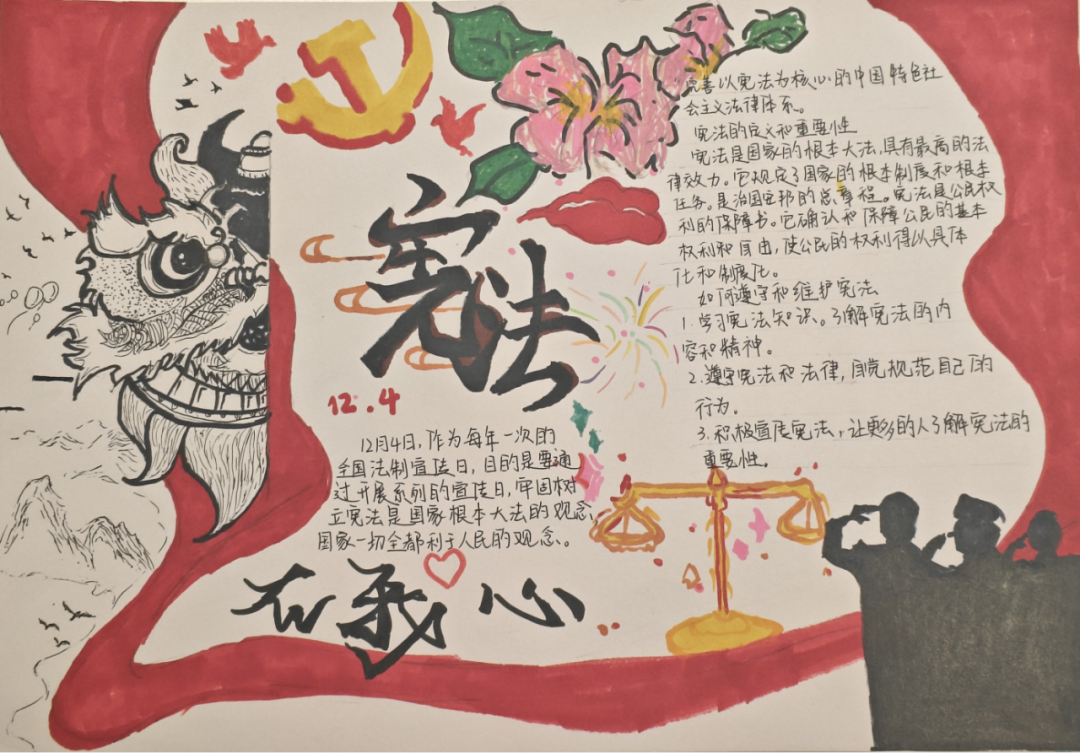 宪法
12.4
12月4日,作为每年一次的
全国法制宣传日,目的是要通
过开展系列的宣传日,牢固树
立宪法是国家根本大法的观念,
国家一切全都利于人民的观念。
在我心
完善以宪法为核心的中国特色社
会主义法律体系。
宪法的定义和重要性
宪法是国家的根本大法,具有最高的法
律效力。它规定了国家的根本制度和根本
任务。是治国安邦的总章程。宪法是公民权
利的保障书。它确认和保障公民的基本
权利和自由,使公民的权利得以具体
化和制度化。
如何遵守和维护宪法
1.学习宪法知识。了解宪法的内
容和精神。
2.遵守宪法和法律,自觉规范自己的
行为。
3.积极宣传宪法,让更多的人了解宪法的
重要性。